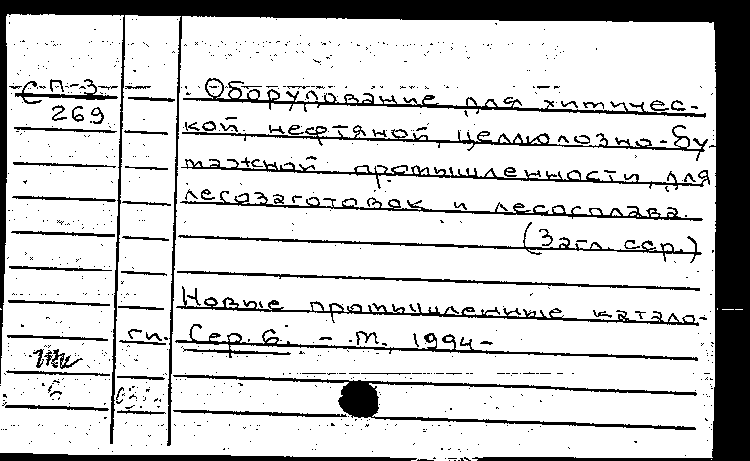 С П-3
269
Оборудование для химичес-
кой, нефтяной, целлюлозно-бу-
мажной промышленности, для
лесозаготовок и лесосплава.
(Загл. сер.)
Новые промышленные катало-
ги. Сер. 6. - М., 1994-
6